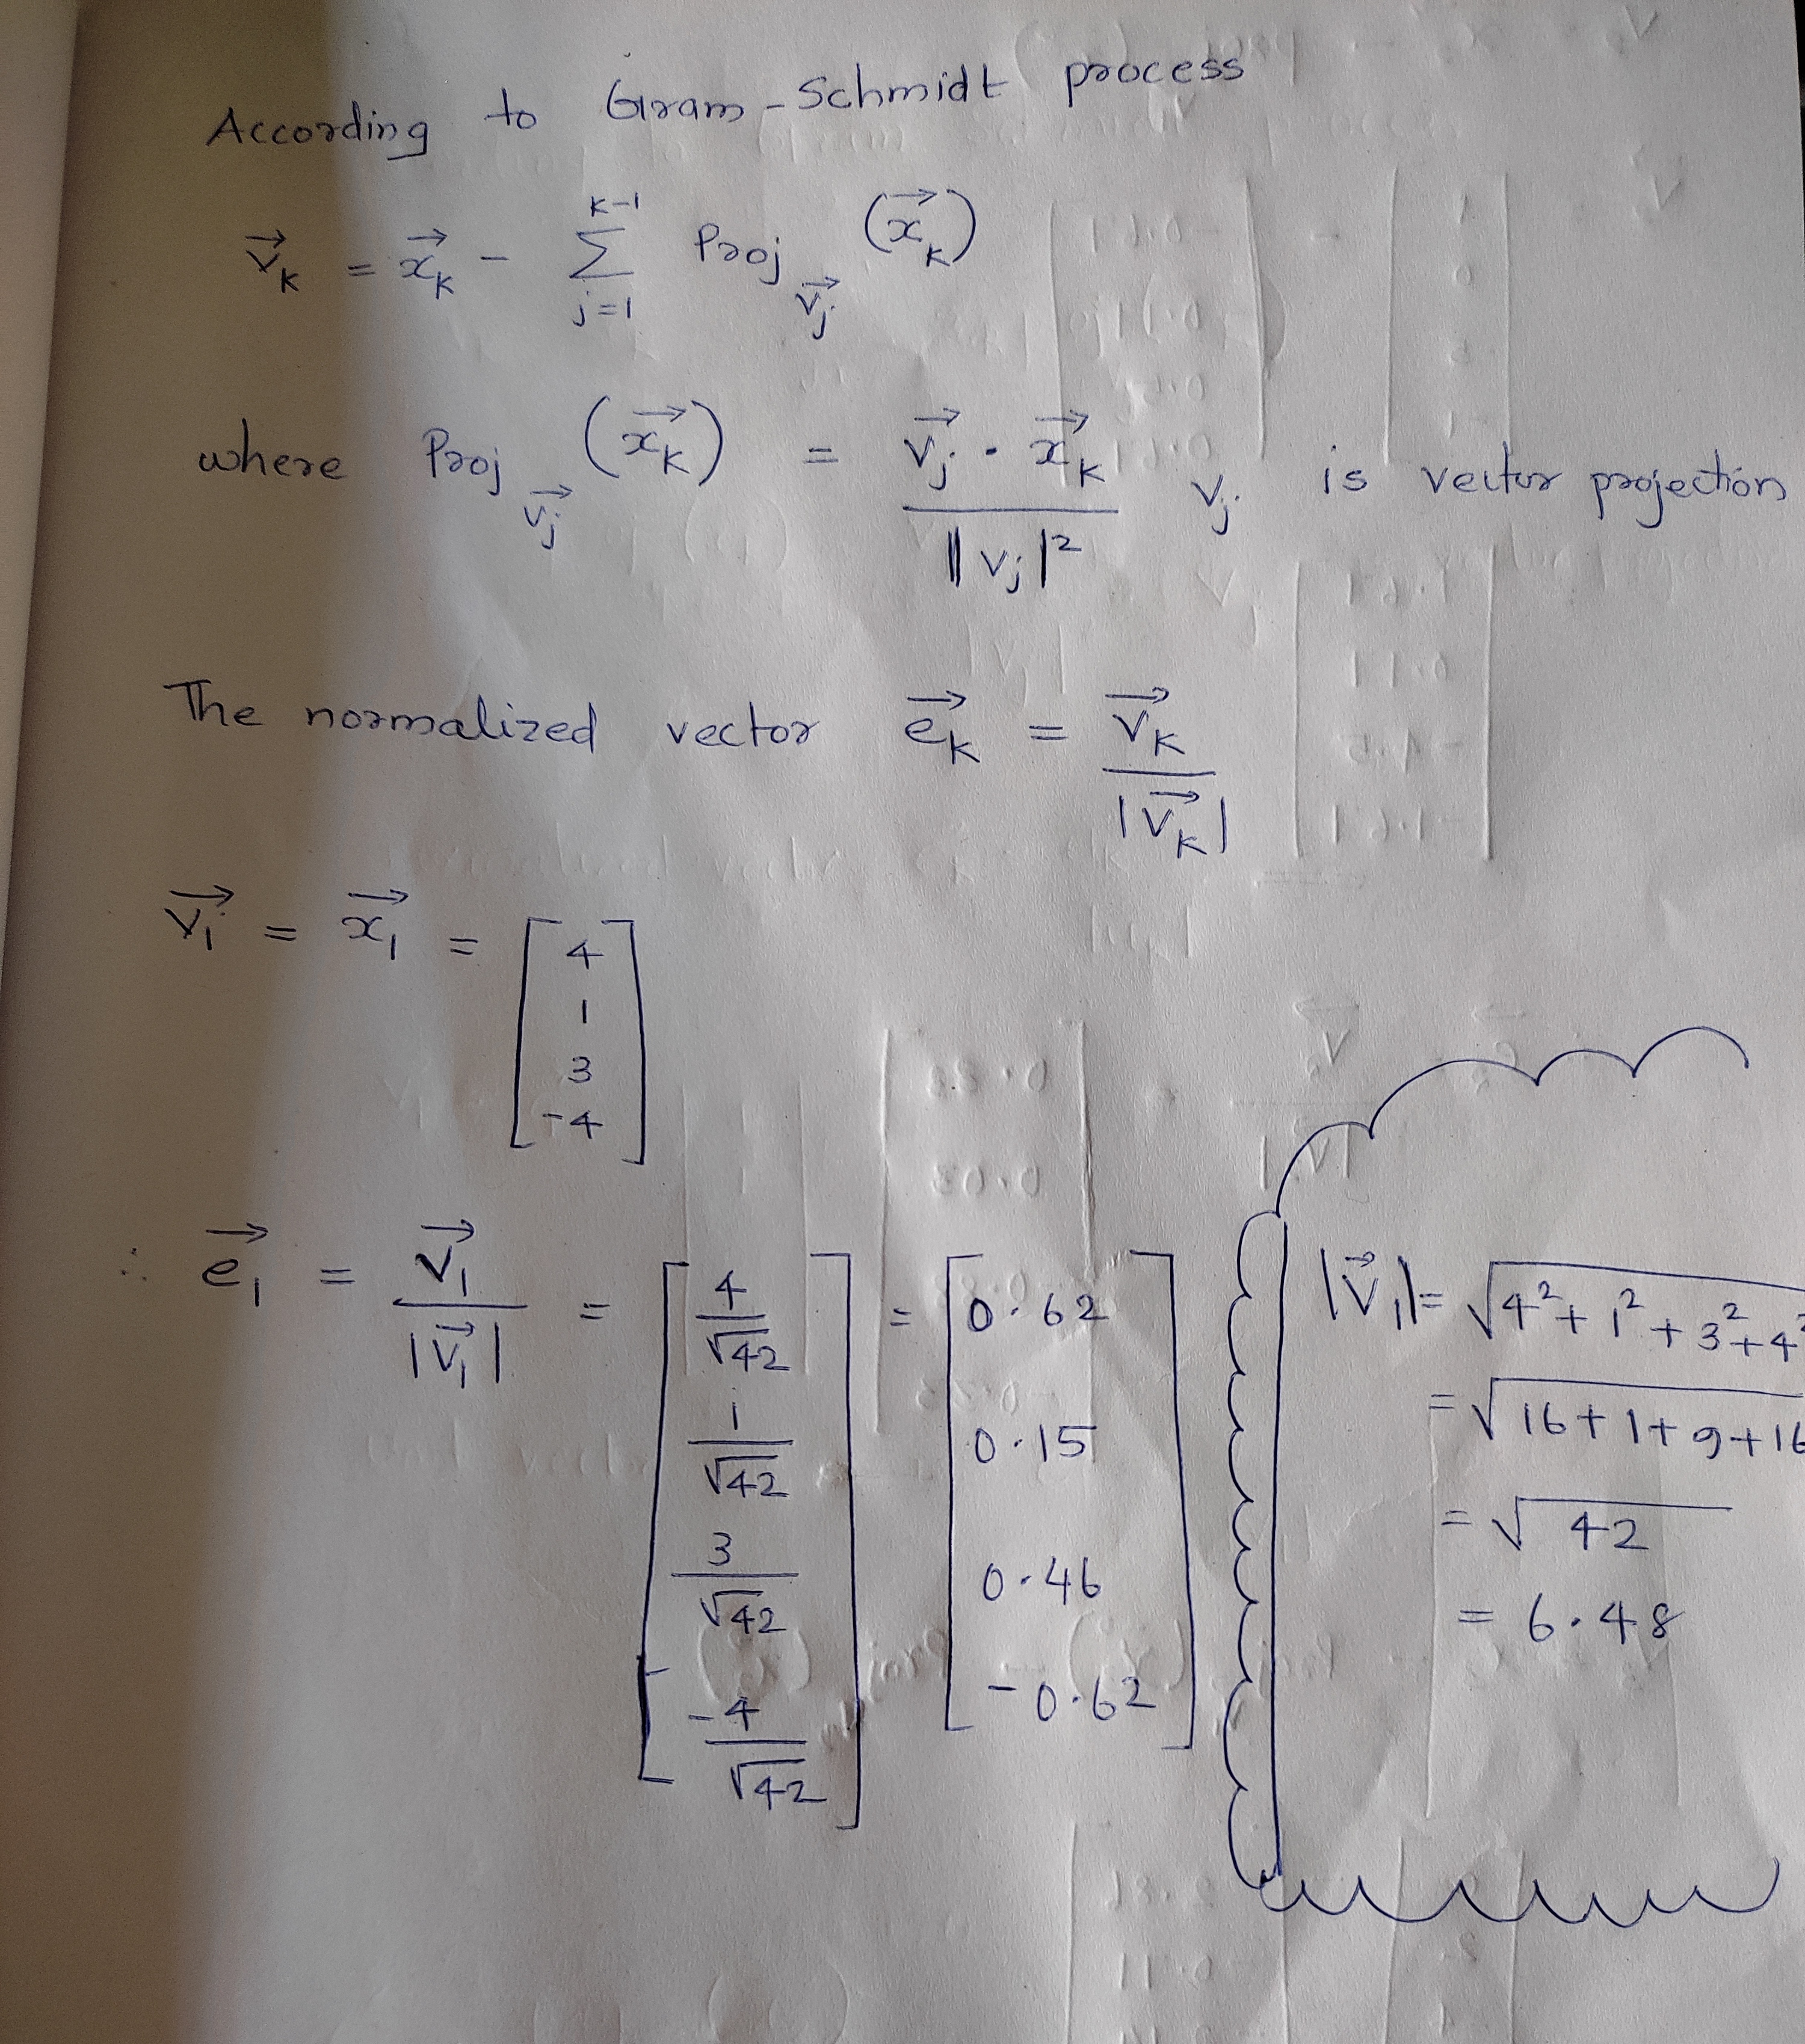 According to Gram-Schmidt process
v⃗_k = x⃗_k - Σ_{j=1}^{k-1} Proj_{v⃗_j} (x⃗_k)
where Proj_{v⃗_j} (x⃗_k) = (v⃗_j · x⃗_k) / ||v_j|² v_j is vector projection
The normalized vector e⃗_k = v⃗_k / |v⃗_k|
v⃗_1 = x⃗_1 = [4
1
3
-4]
∴ e⃗_1 = v⃗_1 / |v⃗_1| = [4/√42 = [0.62
1/√42 0.15
3/√42 0.46
-4/√42] -0.62]
|v⃗_1| = √4² + 1² + 3² + 4²
= √16 + 1 + 9 + 16
= √42
= 6.48